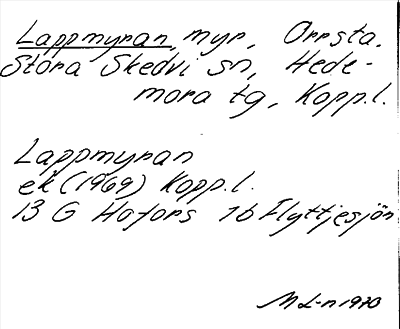 Lappmyran, myr, Orrsta,
Stora Skedvi sn, Hede-
mora tg, Kopp.l.
Lappmyran
ek (1969) Kopp.l.
13 G Hofors 1b Flyttjesjön
M L-n 1970